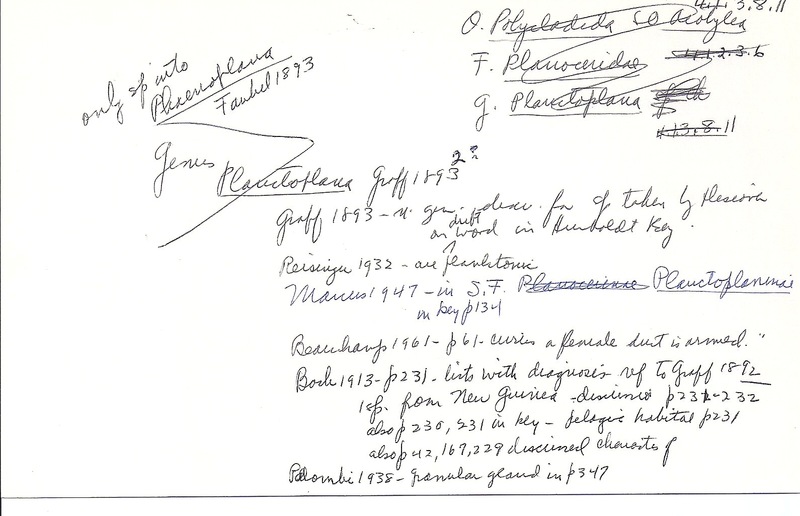 4.1.3.8.11
O. Polycladida SO Acotylea
F. Planoceridae 4.1.2.3.6
G. Planctoplana
4.13.8.11
only sp into
Phaenoplana
Faubel 1893
Genus Planctoplana Graff 1893 2?
Graff 1893 - n. gen. descr. for taken by
drift
on word in Humboldt Key.
Reisinger 1932 - are planktonic
Marcus 1947 - in S.F. Planocerinae Planctoplaninae
in key p134
Beauchamp 1961 - p61 - curies a female duct is armed."
Bock 1913 - p231 - lists with diagnosis ref to Graff 1892
1 sp. from New Guinea - discussed p231-232
also p 230, 231 in key - pelagic habitat p231
also p 42, 167, 229 discussed characters of
Palombi 1938 - granular gland in p347